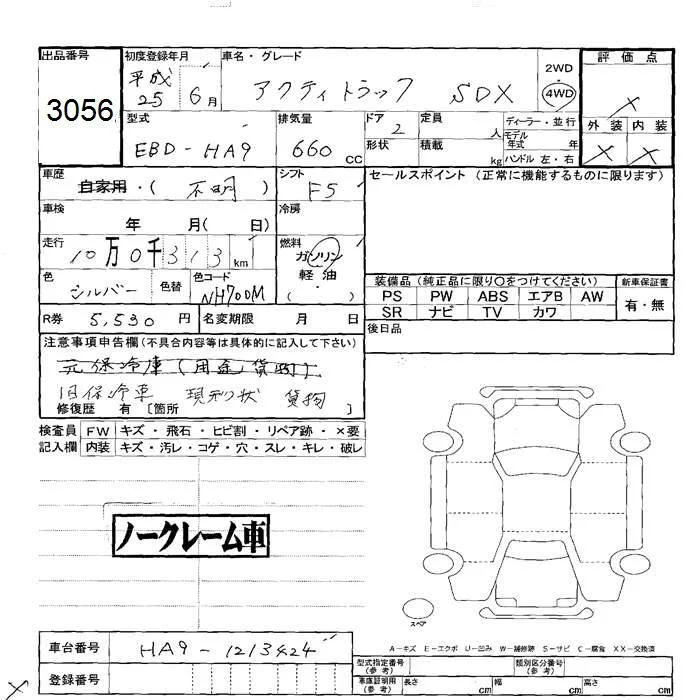 出品番号 初度登録年月 車名・グレード 2WD 評価点
3056 平成25 6月 アクティトラック SDX 4WD ×
型式 排気量 ドア 定員 ディーラー・並行 外装 内装
EBD-HA9 660cc 2 人 モデル年式 年 × ×
形状 積載 kg ハンドル 左・右
車歴 シフト セールスポイント(正常に機能するものに限ります)
自家用・(不明) F5
車検 冷房
年 月( 日)
走行 燃料
10万0千313km ガソリン
軽油
( ・ )
色 色替 色コード 装備品(純正品に限り○をつけてください) 新車保証書
シルバー NH700M PS PW ABS エアB AW 有・無
SR ナビ TV カワ
R券 5,530円 名変期限 月 日 後日品
注意事項申告欄(不具合内容等は具体的に記入して下さい)
元保冷庫(用途貨物)
旧保冷車 現形状 貨物
修復歴 有〔箇所 〕
検査員 FW キズ・飛石・ヒビ割・リペア跡・×要
記入欄 内装 キズ・汚レ・コゲ・穴・スレ・キレ・破レ
ノークレーム車
スペア
車台番号 HA9-1213424 A-キズ E-エクボ U-凹み W-補修跡 S-サビ C-腐食 XX-交換済
型式指定番号(参考) 類別区分番号(参考)
登録番号 車庫証明用(参考) 長さ cm 幅 cm 高さ cm
×